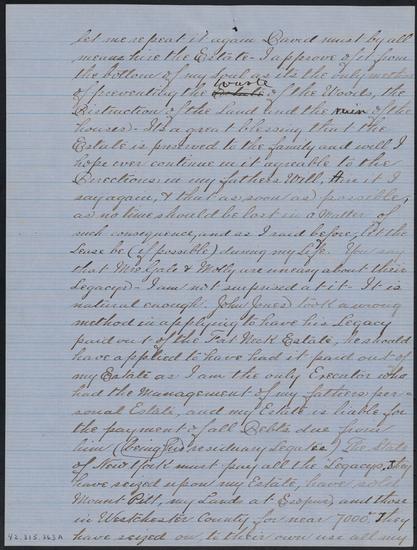 let me repeat it again David must by all
means hire the Estate - I approve of it from
the bottom of my soul as its the only method
of preventing the waste of the Woods, the
Distruction of the Land and the ruin of the
houses - Its a great blessing that the
Estate is preserved to the family and will I
hope ever continue in it agreable to the
Directions in my fathers Will, Hire it I
say again, & that as soon as possible,
as no time should be lost in a Matter of
such consequence, and as I said before, let the
Lease be (if possible) during my Life. You say
that Mrs Gale & Molly are uneasy about their
Legacys - I am not surprised at it. It is
natural enough. John Jones took a wrong
method in applying to have his Legacy
paid out of the Fort Neck Estate, he should
have applied to have had it paid out of
my Estate as I am the only Executor who
had the Management of my fathers per-
sonal Estate, and my Estate is liable for
the payment of all Debts due from
him (being his residuary Legatee) The State
of New York must pay all the Legacys. They
have seized upon my Estate, have sold
Mount Pitt, my Lands at Esopus, and those
in Westchester County for near 7000. They
have seized on, to their own use all my
42.315.363A